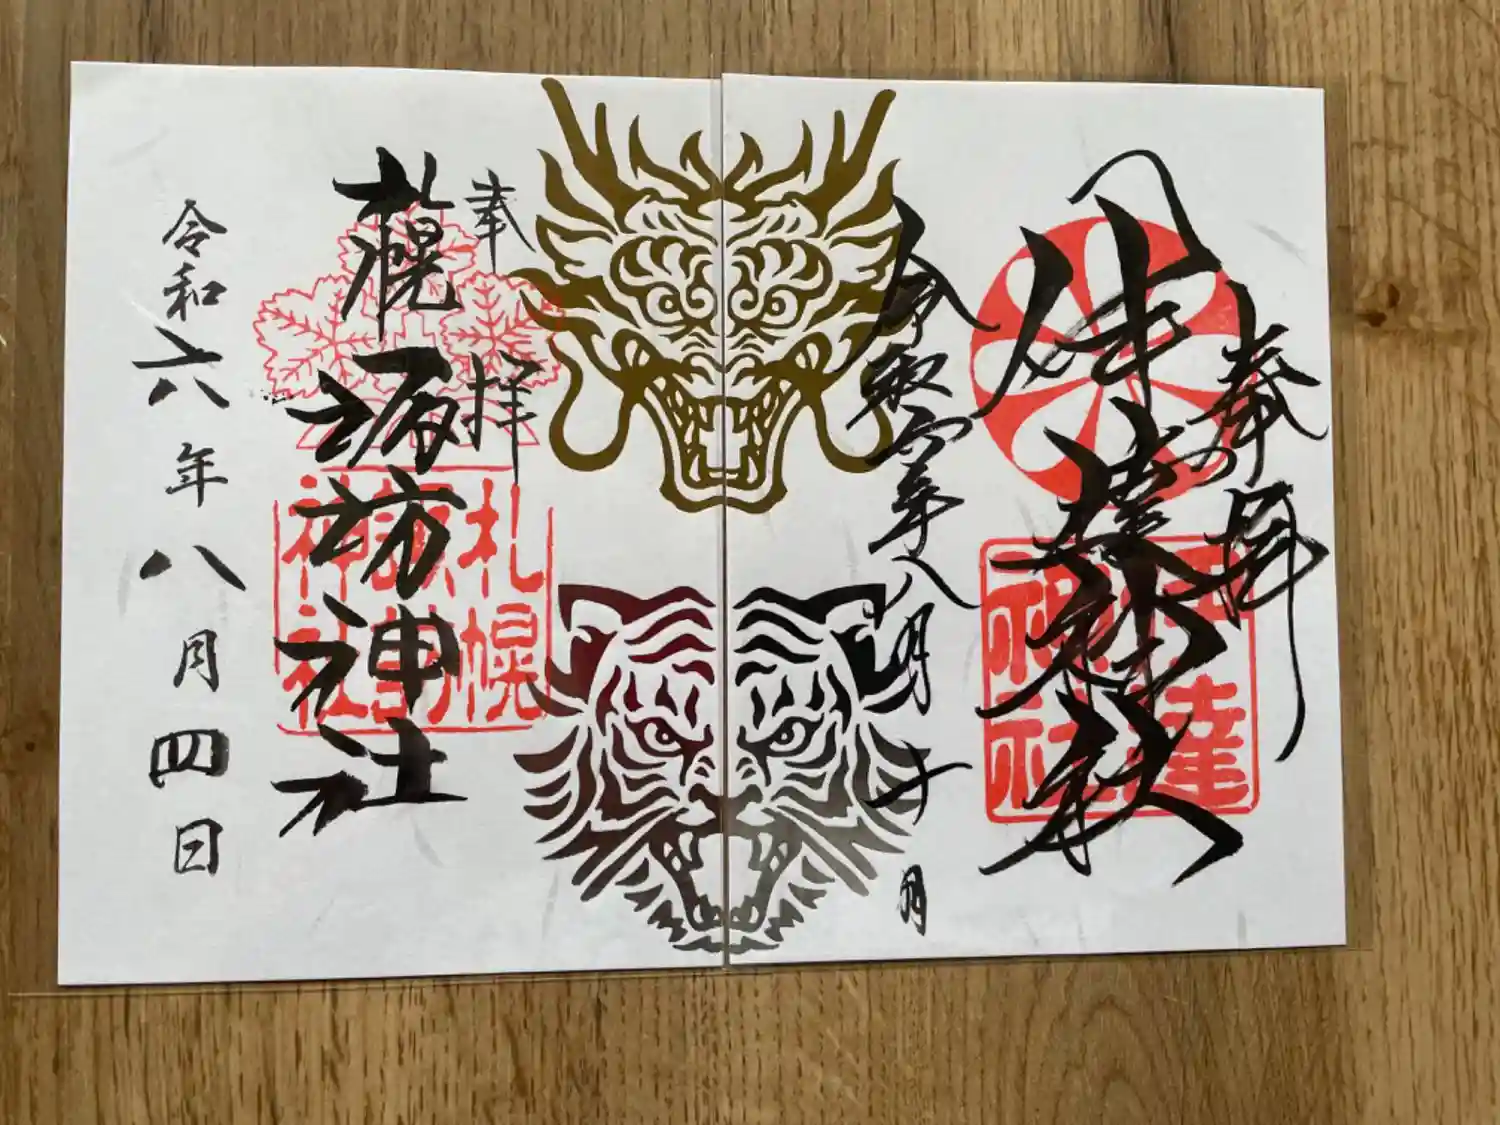 奉拝
伊達神社
伊達
神社
令和六年八月十日
奉拝
札幌諏訪神社
札幌
諏訪
神社
令和六年八月四日